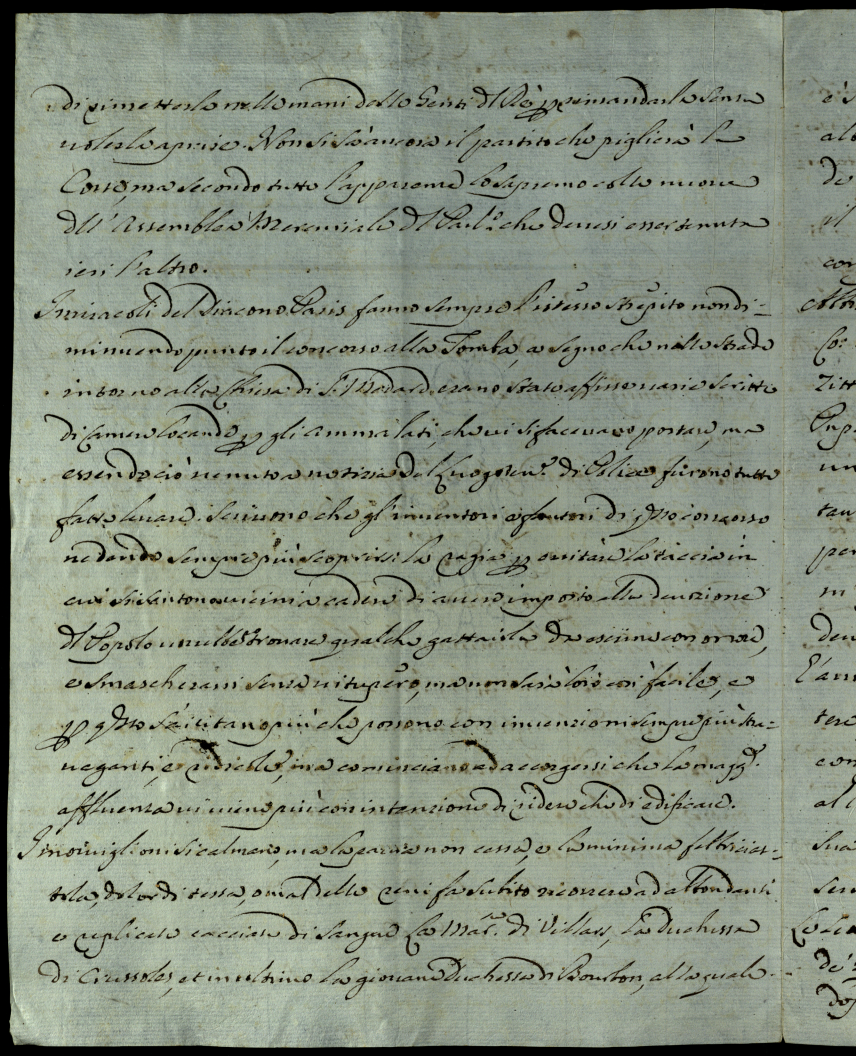 di rimetterla nelle mani delle Genti del Rè, per rimandarla senza
volerla aprire. Non si sà ancora il partito che piglierà la
Corte, ma secondo tutte l'apparenze lo sapremo colle nuove
dell'Assemblea Mercuriale del Parl.o che devesi esser tenuta
ieri l'altro.
I miracoli del Diacono Paris fanno sempre l'istesso strepito non di-
minuendo punto il concorso alla Tomba, a segno che nelle strade
intorno alla Chiesa di S. Medard erano state affisse varie scritte
di Camere locande per gli ammalati che vi si facevano portare, ma
essendo ciò venuto a notizia del Luogoten.e di Polizia furono tutte
fatte levare. Scrivono che gl'inventori e fautori di questo concorso
vedendo sempre più scoprirsi la ragia per evitare la taccia in
cui si sentono vicini a cadere di avere imposto alla devozione
del Popolo vorrebbero trovare qualche gattaiola da escirne con onore,
e smascherarsi senza vitupero, ma non sarà loro così facile, e
per questo s'aiutano più che possono con invenzioni sempre più stra-
vaganti, e ridicole, ma cominciano ad accorgersi che la magg.e
affluenza vi viene più con intenzione di ridere che di edificare.
I morviglioni si calmano, ma la paura non cessa, e la minima febbriciat-
tola, dolor di testa, o mal delle reni fa subito ricorrere ad abbondanti
e replicate cacciate di sangue. La Mar.a di Villars, la Duchessa
di Crussoles, et in ultimo la giovane Duchessa di Bourbon, alla quale